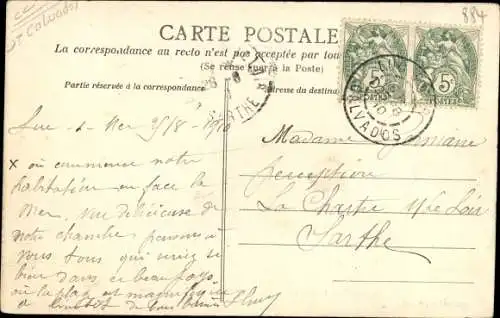 Calvados
884
CARTE POSTALE
La correspondance au recto n'est pas acceptée par tou
(Se renseigner à la Poste)
Partie réservée à la correspondance
Adresse du destina
5c
5c
POSTES
POSTES
CALVADOS
SARTHE
Luc s Mer 25/8 1910
x où commence notre
habitation en face la
Mer, vue délicieuse de
notre chambre pensons à
vous tous qui seriez si
bien dans ce beau pays
où la plage est magnifique
Madame
perception
La Chartre s/ le Loir
Sarthe